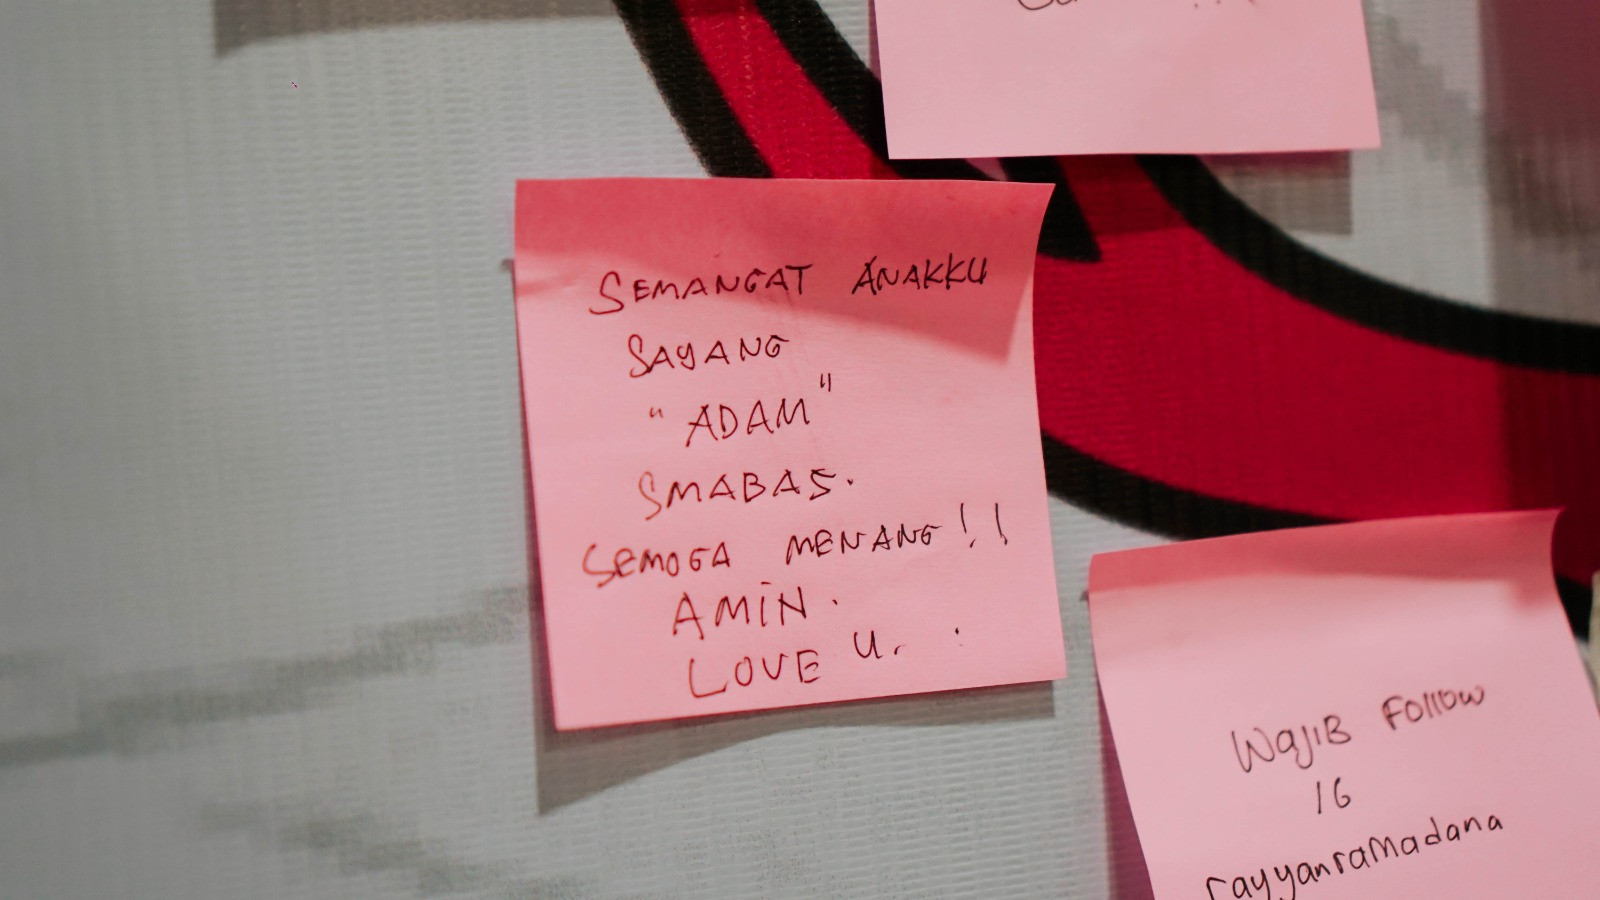 SEMANGAT ANAKKU
SAYANG
"ADAM"
SMABAS.
SEMOGA MENANG!!
AMIN.
LOVE U.
WAJIB FOLLOW
IG
rayyanramadana